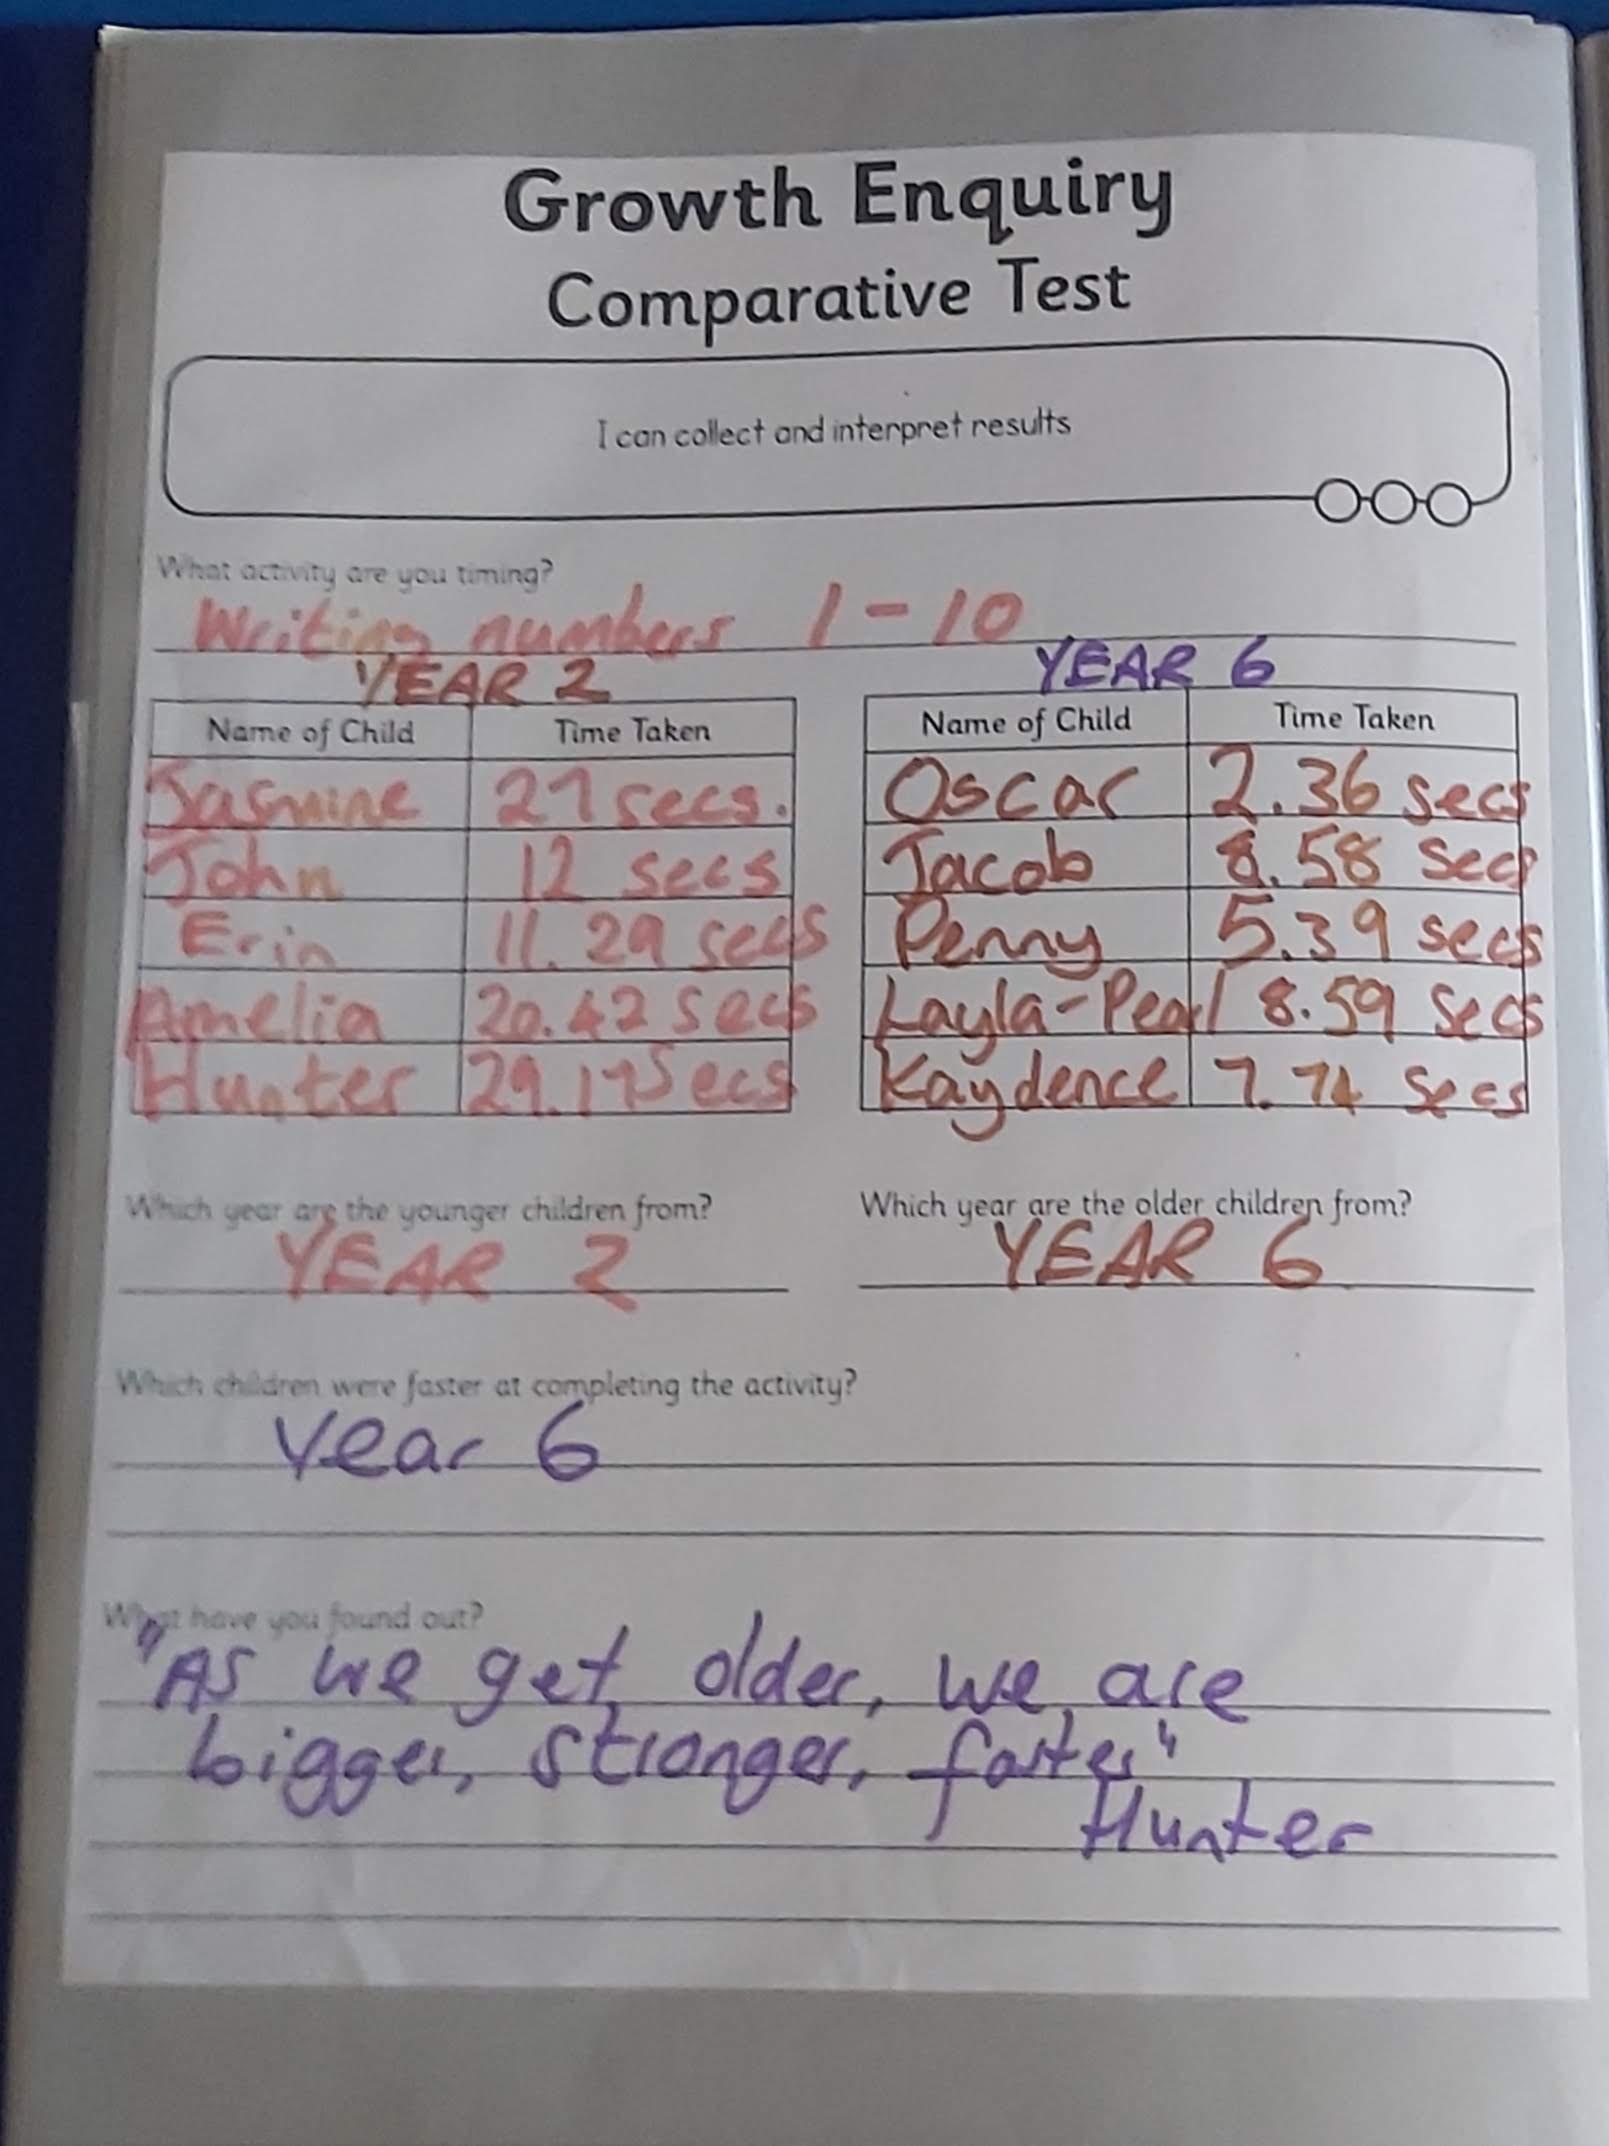 Growth Enquiry
Comparative Test
I can collect and interpret results
What activity are you timing?
Writing numbers 1-10
YEAR 2
Name of Child Time Taken
Jasmine 27 secs.
John 12 secs
Erin 11.29 secs
Amelia 20.42 secs
Hunter 29.17 Secs
YEAR 6
Name of Child Time Taken
Oscar 2.36 secs
Jacob 8.58 secs
Penny 5.39 secs
Layla-Pearl 8.59 secs
Kaydence 7.74 secs
Which year are the younger children from?
YEAR 2
Which year are the older children from?
YEAR 6
Which children were faster at completing the activity?
Year 6
What have you found out?
"As we get older, we are
bigger, stronger, faster"
Hunter